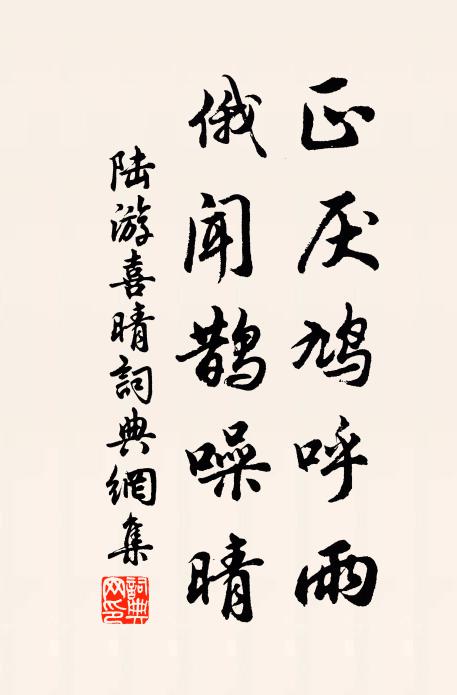 正厌鸠呼雨
俄闻鹊噪晴
陆游喜晴詞典網集
詞典网印